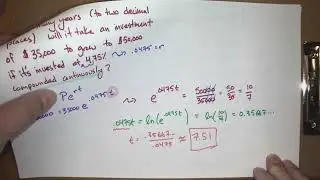 years (to two decimal
places) will it take an investment
of $35,000 to grow to $50,000
if it's invested at 4.75% → .0475 = r
compounded continuously?
Pe^rt
= 35000 e^.0475t
→ e^.0475t = 50000/35000 = 50/35 = 10/7
.0475t = ln(e^.0475t) = ln(10/7) = 0.35667...
t = .35667.../.0475 ≈ 7.51